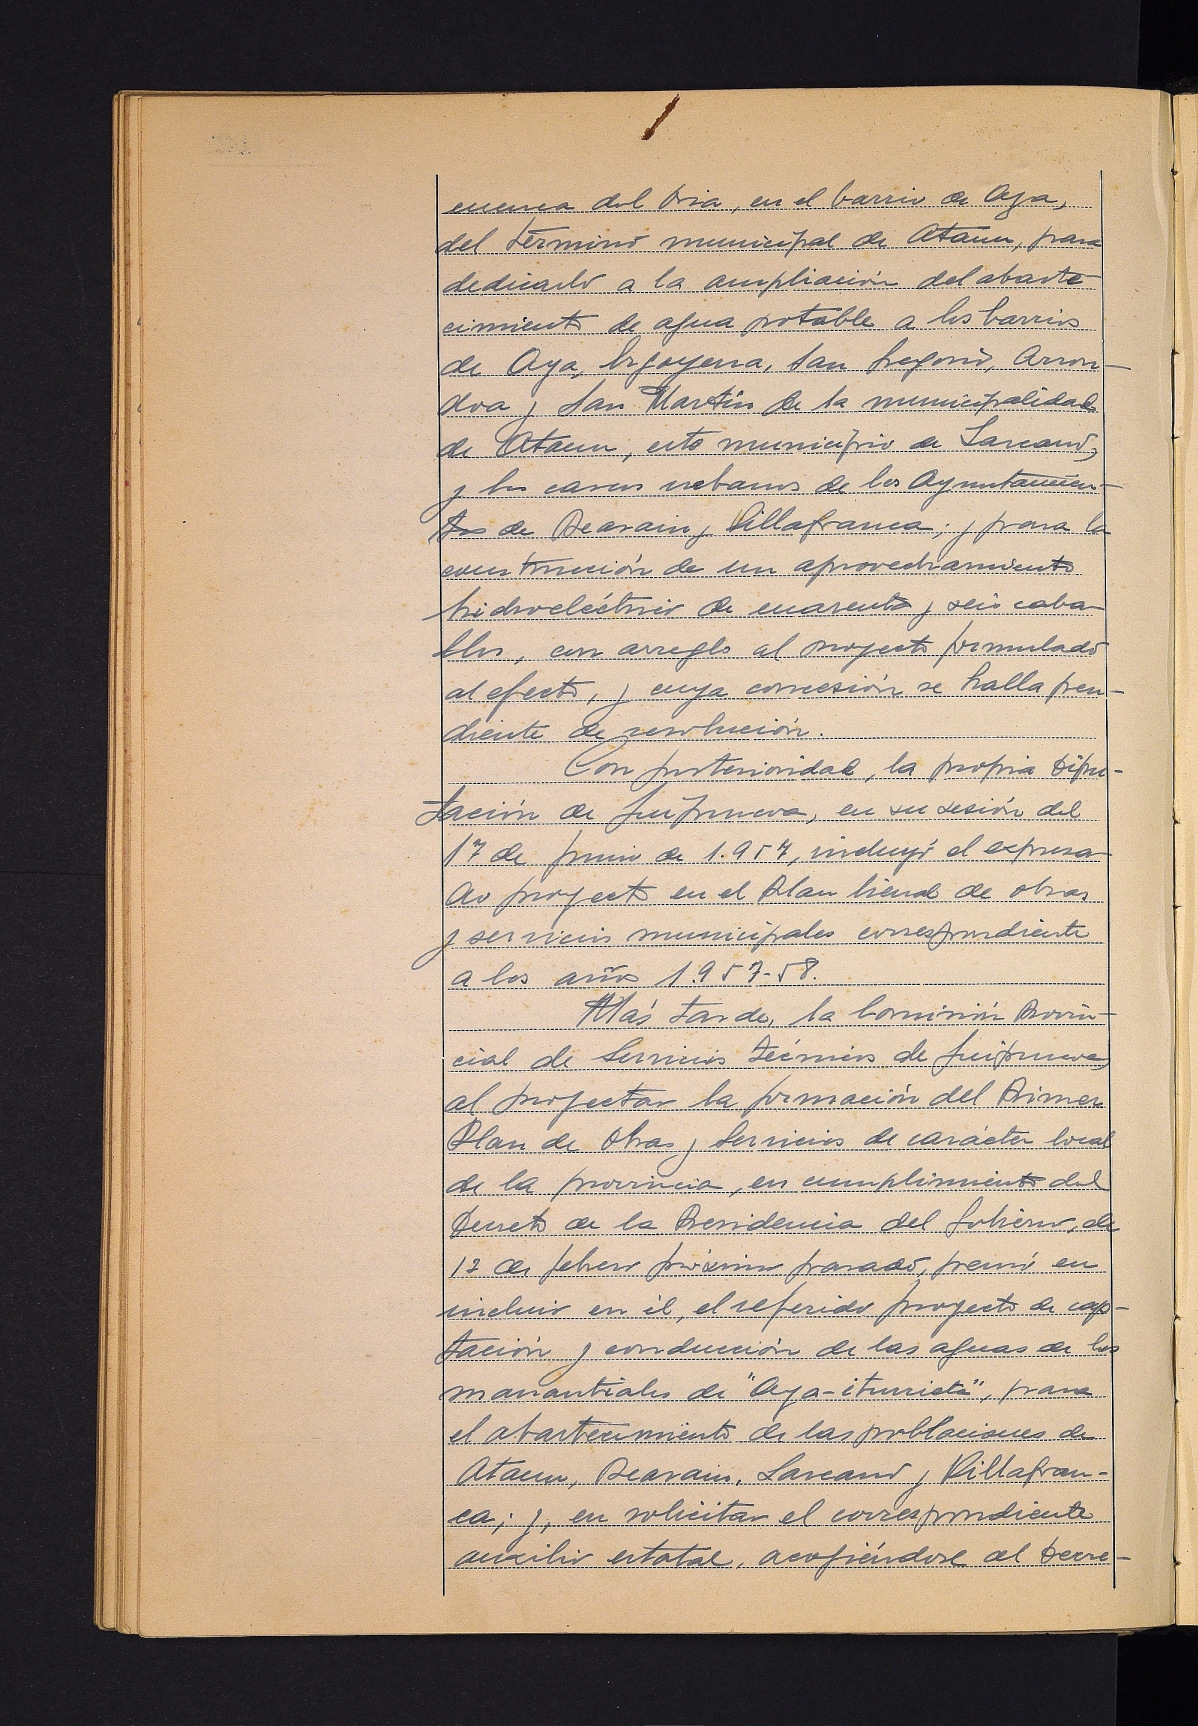 cuenca del Oria, en el barrio de Aya,
del término municipal de Ataun, para
dedicarlo a la ampliación del abaste-
cimiento de agua potable a los barrios
de Aya, Ergoyena, San Gregorio, Arron-
doa y San Martín de la municipalidad
de Ataun, este municipio de Lazcano,
y los cascos urbanos de los Ayuntamien-
tos de Beasain y Villafranca; y para la
construcción de un aprovechamiento
hidroeléctrico de cuarenta y seis caba-
llos, con arreglo al proyecto formulado
al efecto, y cuya concesión se halla pen-
diente de resolución.
Con posterioridad, la propia Dipu-
tación de Guipuzcoa, en su sesión del
17 de junio de 1.957, incluyó el expresa-
do proyecto en el Plan bienal de obras
y servicios municipales correspondiente
a los años 1.957-58.
Más tarde, la Comisión Provin-
cial de Servicios Técnicos de Guipuzcoa,
al proyectar la formación del Primer
Plan de Obras y Servicios de carácter local
de la provincia, en cumplimiento del
Decreto de la Presidencia del Gobierno, de
13 de febrero próximo pasado, pensó en
incluir en él, el referido proyecto de cap-
tación y conducción de las aguas de los
manantiales de "Aya-iturrieta", para
el abastecimiento de las poblaciones de
Ataun, Beasain, Lazcano y Villafran-
ca; y, en solicitar el correspondiente
auxilio estatal, acogiéndose al Decre-